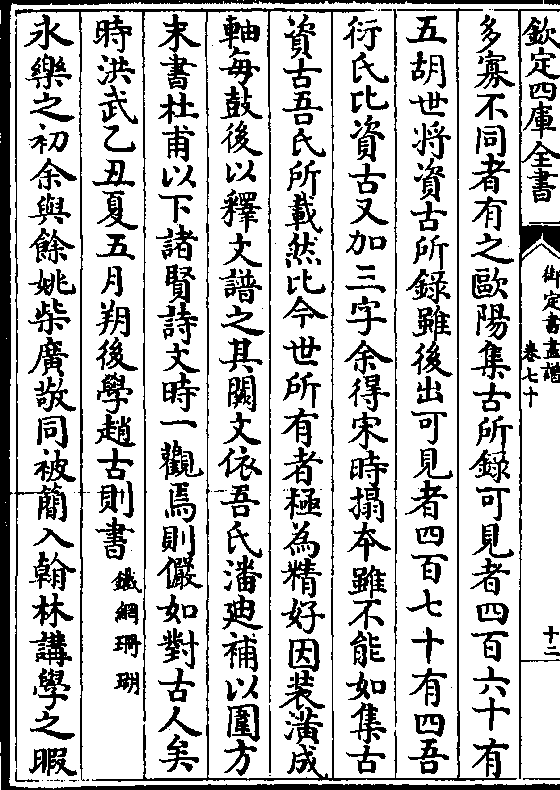 欽定四庫全書
御定書畫譜
卷七十
十二
多寡不同者有之歐陽集古所錄可見者四百六十有
五胡世将資古所錄雖後出可見者四百七十有四吾
衍氏比資古又加三字余得宋時搨本雖不能如集古
資古吾氏所載然比今世所有者極為精好因装潢成
軸每鼓後以釋文譜之其闕文依吾氏潘廸補以圍方
末書杜甫以下諸賢詩文時一觀焉則儼如對古人矣
時洪武乙丑夏五月朔後學趙古則書 鐵網珊瑚
永樂之初余與餘姚柴廣敬同被蘭入翰林講學之暇